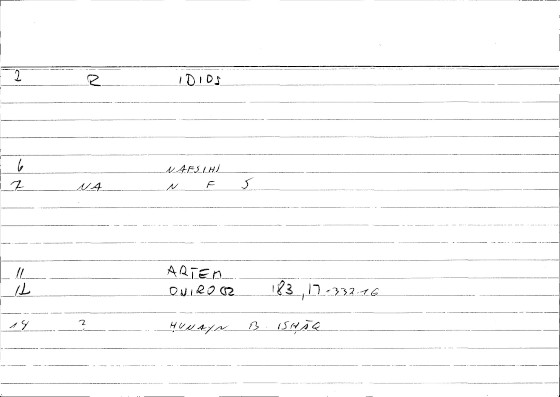 2 R IDIOS
6 NAFSIHI
7 NA N F S
11 ARTEM
12 ONIROCR 183,17-332-16
14 2 ḤUNAYN B. ISḤĀQ